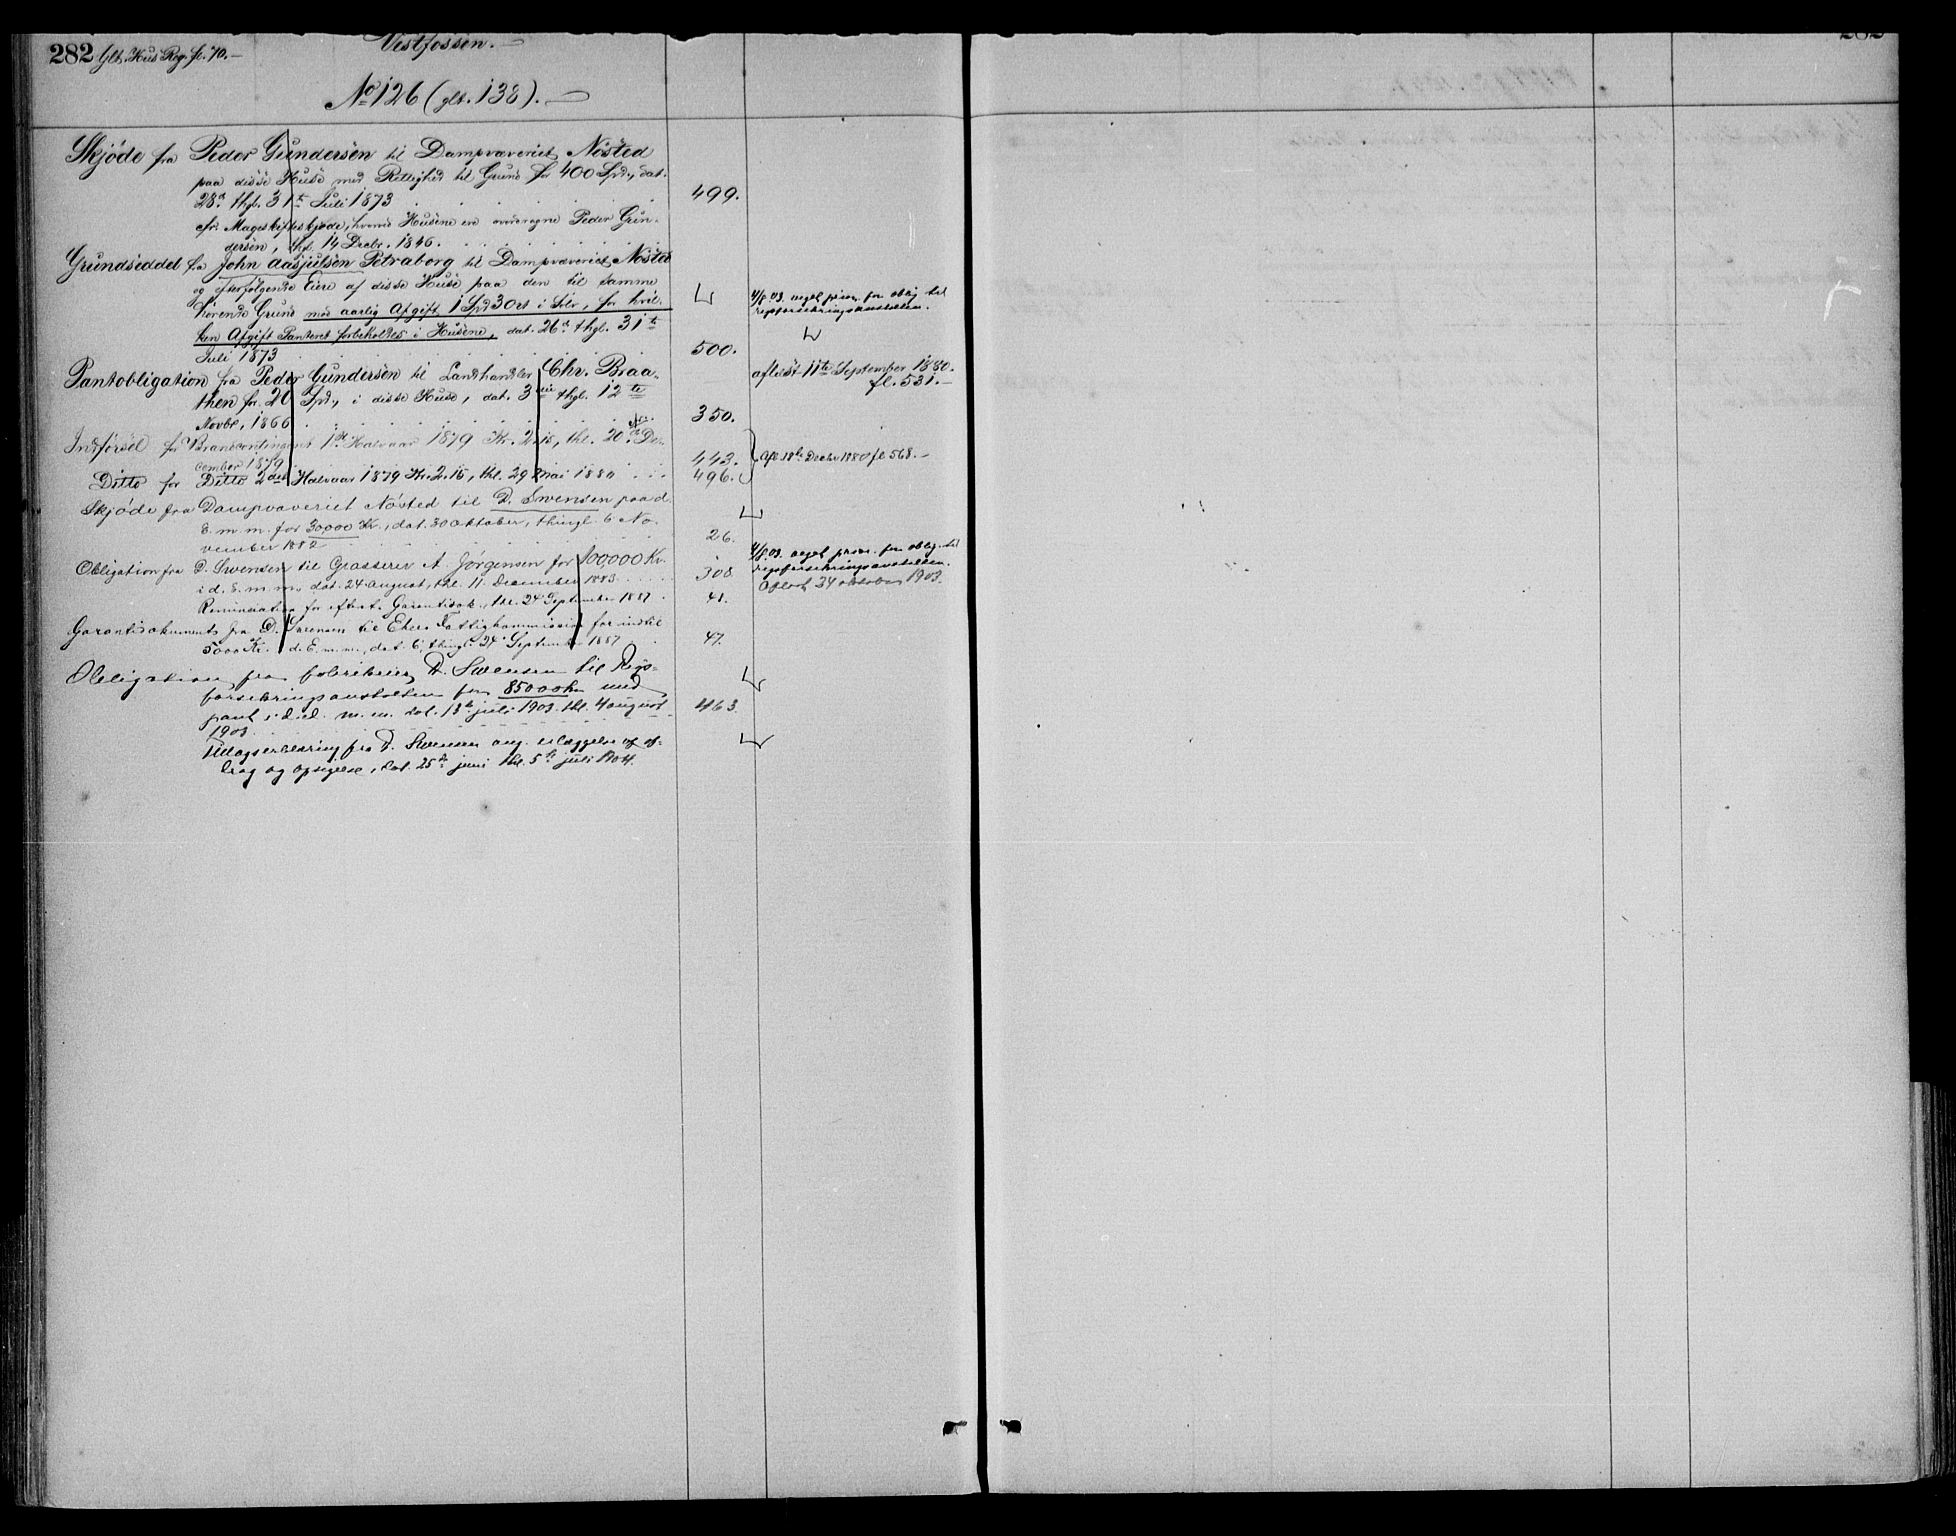 282 Glt. Hus Reg. fl. 70.—
Vestfossen.—
No 126 (glt. 138).—
Skjøde fra Peder Gundersen til Dampvæveriet Nøsted
paa disse Huse med Rettighed til Grund for 400 Spd., dat.
28d thgl. 31te Juli 1873 499.
cfr. Mageskifteskjøde, hvorved Husene ere overdragne Peder Gun-
dersen, thgl. 14 Decbr. 1846.
Grundseddel fra John Aasjulsen Petraborg til Dampvæveriet Nøsted
og efterfølgende Eiere af disse Huse paa den til samme
hørende Grund mod aarlig Afgift 1 Spd 3 Ort i Sølv, for hvil-
ken Afgift Panteret forbeholdes i Husene, dat. 26d thgl. 31te
Juli 1873 500.
4/8.03. veget prior. for oblig. til
rigsforsikringsanstalten.
Pantobligation fra Peder Gundersen til Landhandler Chr. Braa-
then for 20 Spd., i disse Huse, dat. 3die thgl. 12te
Novbr. 1866 350.
aflæst 11te September 1880.
fl. 531.—
Indførsel for Brandcontingent 1ste Halvaar 1879 Kr. 2.15, thl. 20de De-
cember 1879 443.
Ditto for Ditto 2det Halvaar 1879 Kr. 2.15, thl. 29 Mai 1880 496.
Afl. 18de Decbr 1880 fl 568.—
Skjøde fra Dampvæveriet Nøsted til D. Svensen paa d.
E. m. m. for 30000 Kr., dat. 30 Oktober, thingl. 6 No-
vember 1882 26.
Obligation fra D. Svensen til Grosserer A. Jørgensen for 100,000 Kr.
i d. E. m. m., dat. 24 August, thl. 11 December 1883 308
4/8.03. veget prior. for oblig. til
rigsforsikringsanstalten.
Aflæst 24 oktober 1903.
Renunciation for efterst. Garantidok., thl. 24 September 1887 48.
Garantidokument fra D. Svensen til Ekers Fattigkommission for indtil
5000 Kr. i d. E. m. m., dat. 6, thingl. 24 September 1887 47.
Obligation fra fabrikeier D. Svensen til Rigs-
forsikringsanstalten for 85000 kr. med
pant i d. ed. m. m. dat. 13de juli 1903. thl. 4 august
1903. 463.
Tillægserklæring fra D. Svensen ang. erlæggelse af af-
drag og opsigelse, dat. 25de juni thl. 5te juli 1904.